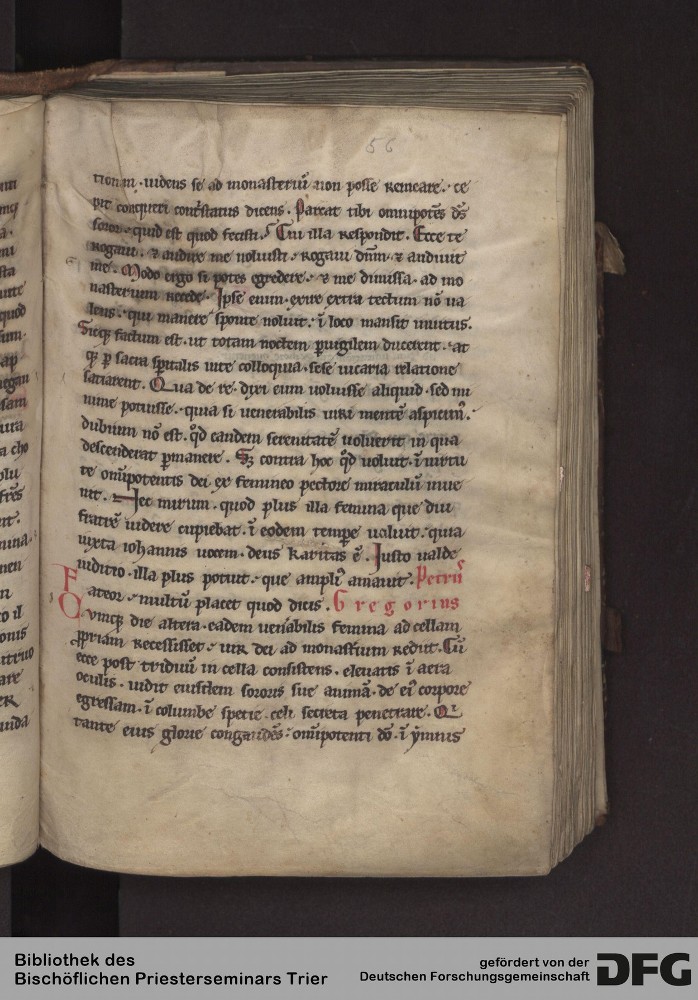 56
tionum. uidens se ad monasteriū non posse remeare. ce
pit conqueri contͥstatus dicens. Parcat tibi omnipotēs dſ̄
soror. quid est quod fecisti. Cui illa respondit. Ecce te
rogaui. & audire me noluisti. rogaui dnm̄. & audiuit
me. Modo ergo si potes egredere. & me dimissa. ad mo
nasterium recede. Ipse eium. exire extra tectum nō ua
lens. qui manere sponte noluit. ī loco mansit inuitus.
Sicq; factum est. ut totam noctem ꝑuigilem ducerent. at
q; ꝑ sacra spͥitalis uite colloquia. sese uicaria relatione
satiarent. Qua de re. dixi eum uoluisse aliquid. sed mi
nime potuisse. quia si uenerabilis uiri mentē aspicim̉.
dubium nō est. qd̓ eandem serenitatē uoluerit in qua
descenderat ꝑmanere. Sꝫ contra hoc qd̓ uoluit. ī uirtu
te om̄ipotentis dei ex femineo pectore miraculū inue
nit. Nec mirum. quod plus illa femina que diu
fratrē uidere cupiebat. ī eodem tempe ualuit. quia
iuxta iohannis uocem. deus karitas ē. Iusto ualde
iuditio. illa plus potuit. que ampli᾽ amauit. Petrus̓
Fateor. multū placet quod dicis. Gregorius
Cumq; die altera. eadem uenābilis femina ad cellam
ꝓpriam recessisset. uir dei ad monasͭium rediit. Cū
ecce post triduū in cella consistens. eleuatis ī aera
oculis. uidit eiusdem sororis sue animā. de ei᾽ corpore
egressam. ī columbe specie. celi secreta penetrare. Qͥ
tante eius glorie congaudēs. om̄ipotenti dō. ī ymnis
Bibliothek des
Bischöflichen Priesterseminars Trier
gefördert von der
Deutschen Forschungsgemeinschaft
DFG